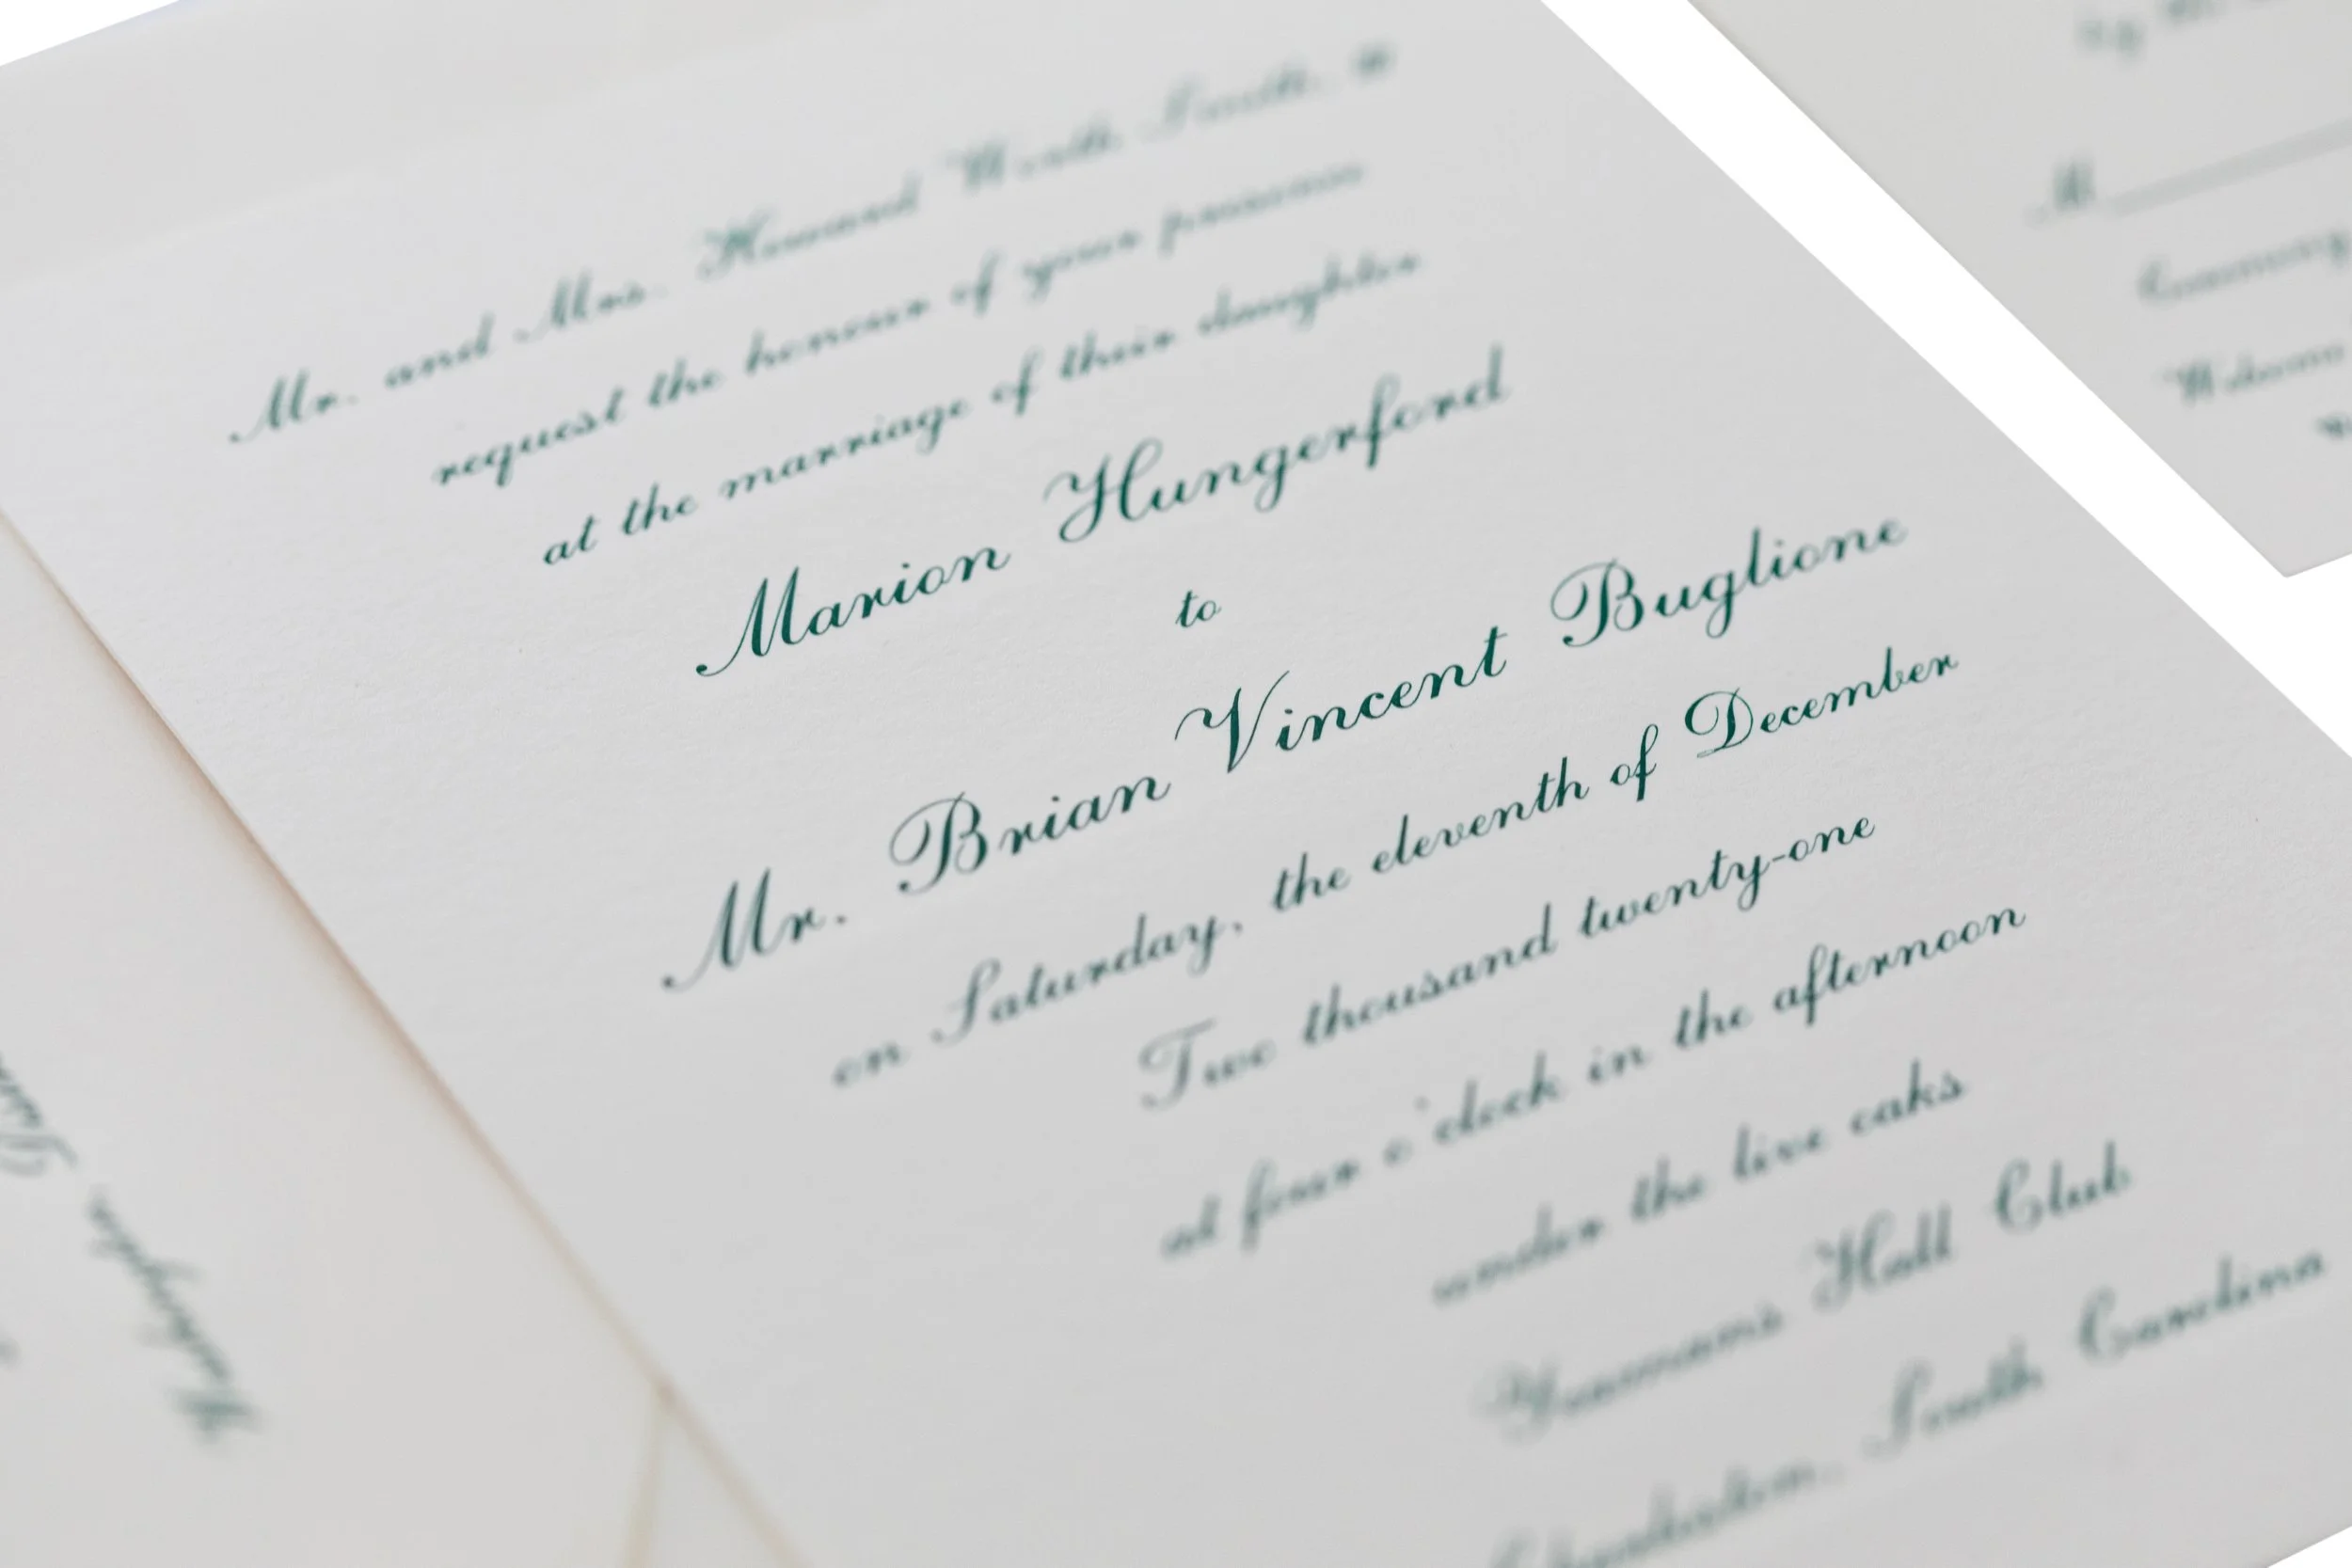 Mr. and Mrs. Howard Worth Smith,
request the honour of your presence
at the marriage of their daughter
Marion Hungerford
to
Mr. Brian Vincent Buglione
on Saturday, the eleventh of December
Two thousand twenty-one
at four o'clock in the afternoon
under the live oaks
Yeamans Hall Club
Charleston, South Carolina
M